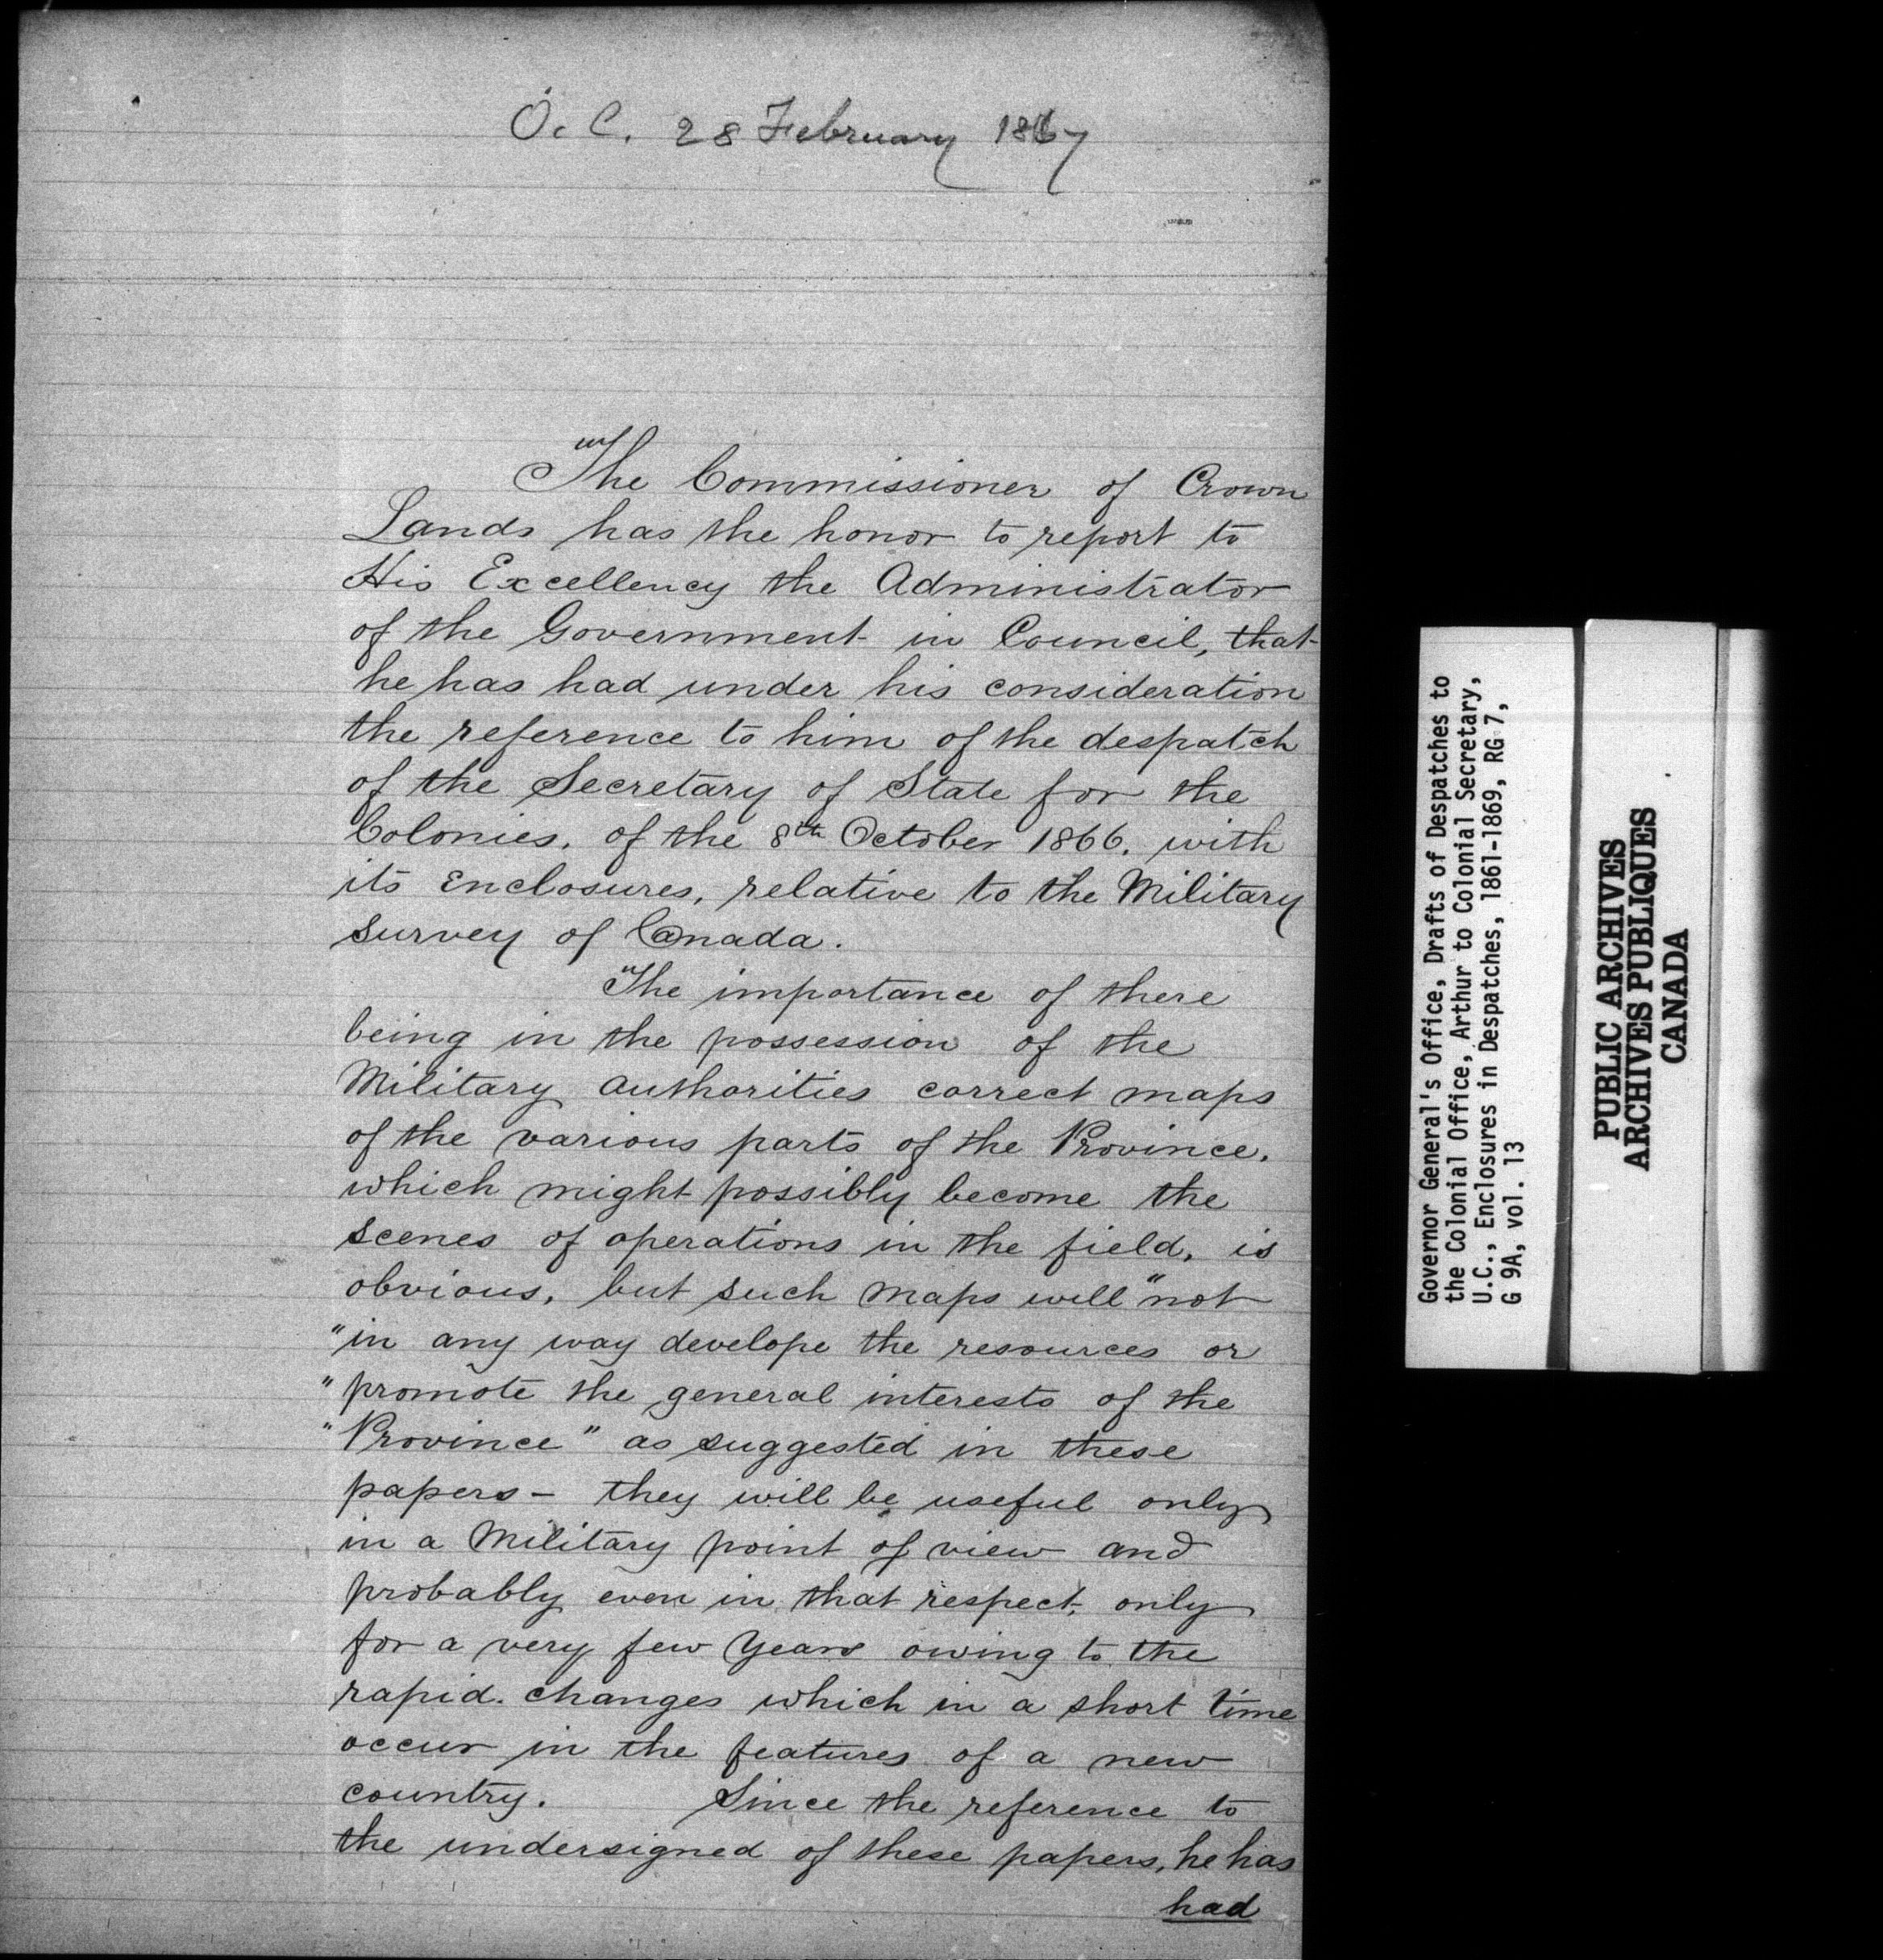 O.C. 28 February 1867
The Commissioner of Crown
Lands has the honor to report to
His Excellency the Administrator
of the Government in Council, that
he has had under his consideration
the reference to him of the despatch
of the Secretary of State for the
Colonies, of the 8th October 1866, with
its Enclosures, relative to the Military
Survey of Canada.
The importance of there
being in the possession of the
Military authorities correct maps
of the various parts of the Province,
which might possibly become the
scenes of operations in the field, is
obvious, but such maps will "not
"in any way develope the resources or
"promote the general interests of the
"Province" as suggested in these
papers - they will be useful only
in a Military point of view and
probably even in that respect, only
for a very few Years owing to the
rapid changes which in a short time
occur in the features of a new
country. Since the reference to
the undersigned of these papers, he has
had
Governor General's Office, Drafts of Despatches to
the Colonial Office, Arthur to Colonial Secretary,
U.C., Enclosures in Despatches, 1861-1869, RG 7,
G 9A, vol. 13
PUBLIC ARCHIVES
ARCHIVES PUBLIQUES
CANADA